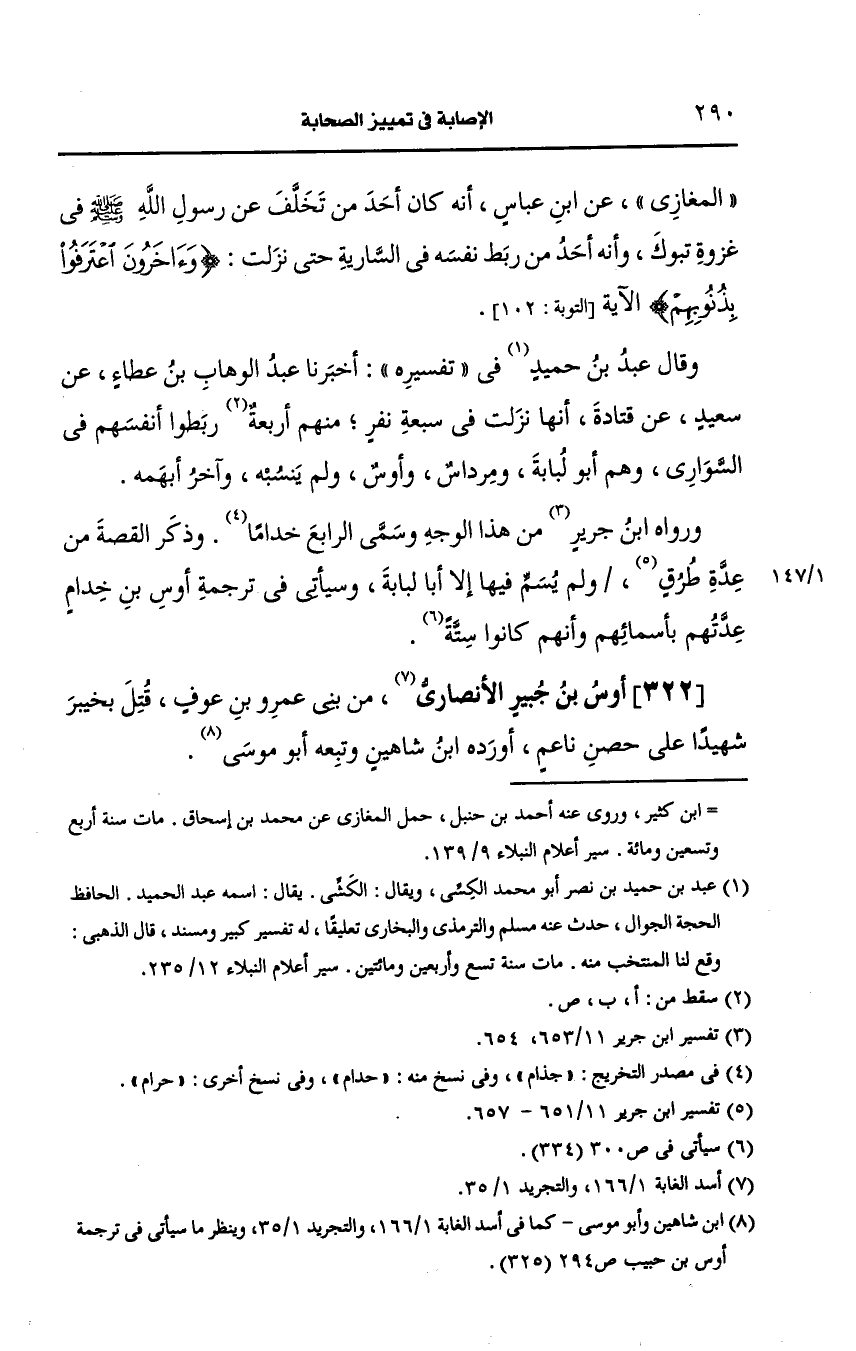 ٢٩٠
الإصابة فى تمييز الصحابة
« المغازِى » ، عن ابنِ عباسٍ ، أنه كان أحَدَ من تَخَلَّفَ عن رسولِ اللَّهِ ﷺ فى
غزوةِ تبوكَ ، وأنه أحَدُ من ربَط نفسَه فى السَّاريةِ حتى نزَلت : ﴿وَءَاخَرُونَ ٱعْتَرَفُوا۟
بِذُنُوبِهِمْ﴾ الآية [التوبة : ١٠٢] .
وقال عبدُ بنُ حميدٍ(١) فى « تفسيرِه » : أخبَرنا عبدُ الوهابِ بنُ عطاءٍ ، عن
سعيدٍ ، عن قتادةَ ، أنها نزَلت فى سبعةِ نفرٍ ؛ منهم أربعةٌ(٢) ربَطوا أنفسَهم فى
السَّوَارِى ، وهم أبو لُبابةَ ، ومِرداسٌ ، وأوسٌ ، ولم يَنسُبْه ، وآخرُ أبهَمه .
ورواه ابنُ جريرٍ(٣) من هذا الوجهِ وسَمَّى الرابعَ خدامًا(٤) . وذكَر القصةَ من
عِدَّةِ طُرُقٍ(٥) ، / ولم يُسَمِّ فيها إلا أبا لبابةَ ، وسيأتِى فى ترجمةِ أوسِ بنِ خِدامٍ
١٤٧/١
عِدَّتُهم بأسمائِهم وأنهم كانوا سِتَّةً(٦) .
[٣٢٢] أوسُ بنُ جُبيرٍ الأنصارىُّ(٧) ، من بنى عمرِو بنِ عوفٍ ، قُتِلَ بخيبرَ
شهيدًا على حصنِ ناعمٍ ، أورَده ابنُ شاهينٍ وتبِعه أبو موسَى(٨) .
= ابن كثير ، وروى عنه أحمد بن حنبل ، حمل المغازى عن محمد بن إسحاق . مات سنة أربع
وتسعين ومائة . سير أعلام النبلاء ٩/ ١٣٩.
(١) عبد بن حميد بن نصر أبو محمد الكِسِّى ، ويقال : الكَشِّى . يقال : اسمه عبد الحميد . الحافظ
الحجة الجوال ، حدث عنه مسلم والترمذى والبخارى تعليقًا ، له تفسير كبير ومسند ، قال الذهبى :
وقع لنا المنتخب منه . مات سنة تسع وأربعين ومائتين . سير أعلام النبلاء ١٢/ ٢٣٥.
(٢) سقط من : أ ، ب ، ص .
(٣) تفسير ابن جرير ١١/ ٦٥٣، ٦٥٤.
(٤) فى مصدر التخريج : «جذام» ، وفى نسخ منه : «حدام» ، وفى نسخ أخرى : «حرام» .
(٥) تفسير ابن جرير ١١/ ٦٥١ - ٦٥٧.
(٦) سيأتى فى ص٣٠٠ (٣٣٤) .
(٧) أسد الغابة ١/ ١٦٦، والتجريد ١/ ٣٥.
(٨) ابن شاهين وأبو موسى - كما فى أسد الغابة ١/ ١٦٦، والتجريد ١/ ٣٥، وينظر ما سيأتى فى ترجمة
أوس بن حبيب ص٢٩٤ (٣٢٥) .